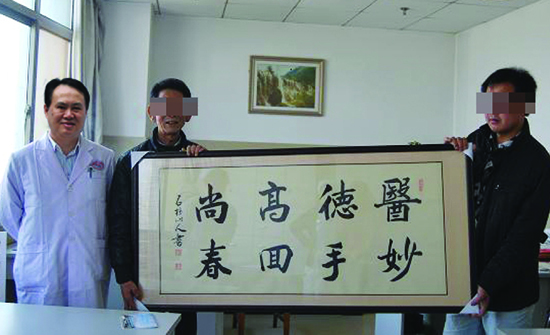 醫德高尚
妙手回春
人書